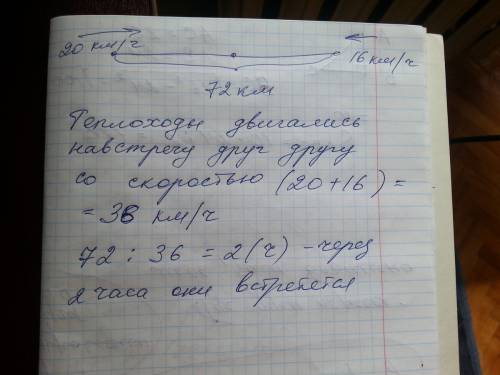 20 км/ч
16 км/ч
72 км
Теплоходы двигались
навстречу друг другу
со скоростью (20+16) =
= 36 км/ч
72 : 36 = 2 (ч) – через
2 часа они встретятся